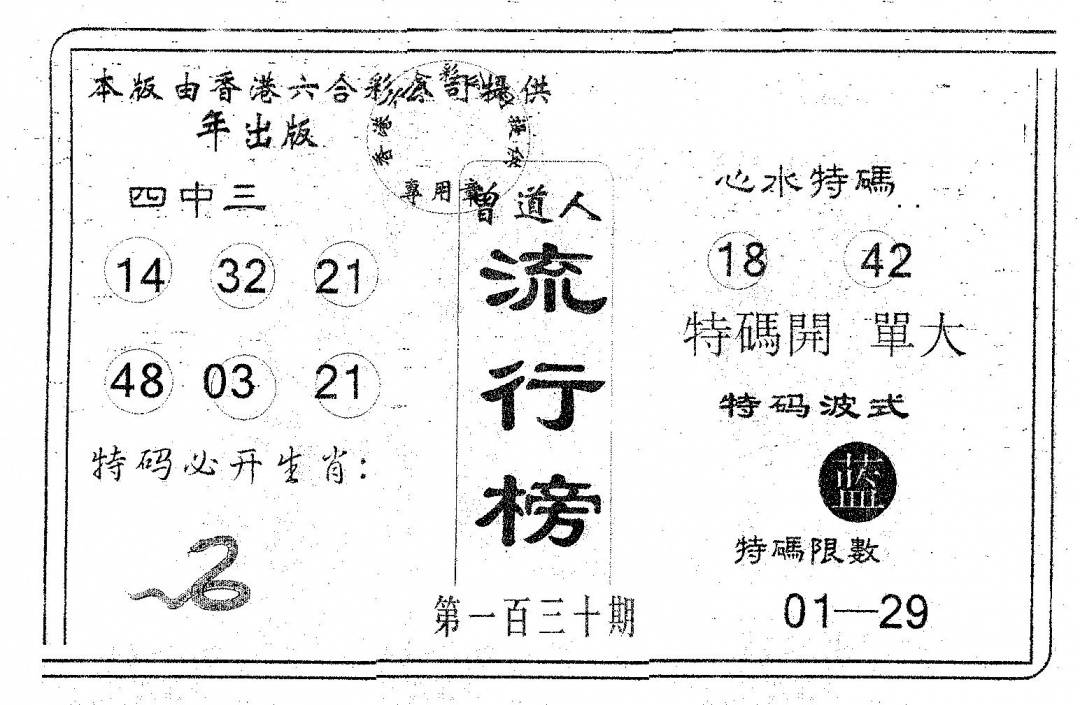 本版由香港六合彩會訂提供
年出版
四中三
14 32 21
48 03 21
特码必开生肖：
專用章
曾道人
流行榜
第一百三十期
心水特碼
18 42
特碼開 單大
特码波式
蓝
特碼限數
01—29